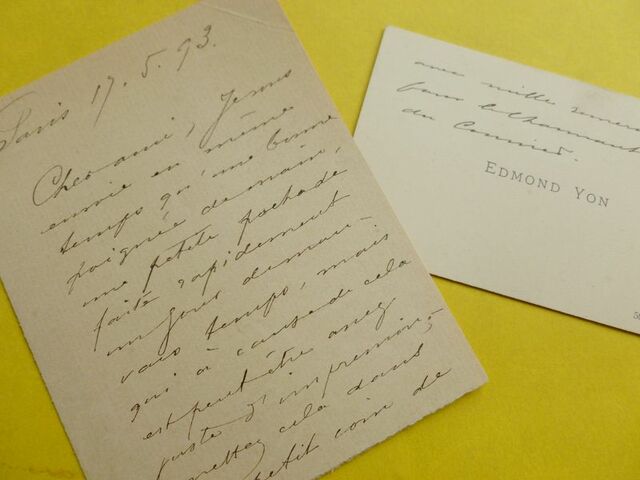 Paris 17.5.93.
Cher ami, Je vous
envoie en même
temps qu'une bonne
poignée de main,
une petite pochade
faite rapidement
un jour de mau-
vais temps, mais
qui à cause de cela
est peut être assez
juste d'impression,
mettez cela dans
petit coin de
avec mille remer
pour le charmant
du Courrier.
EDMOND YON